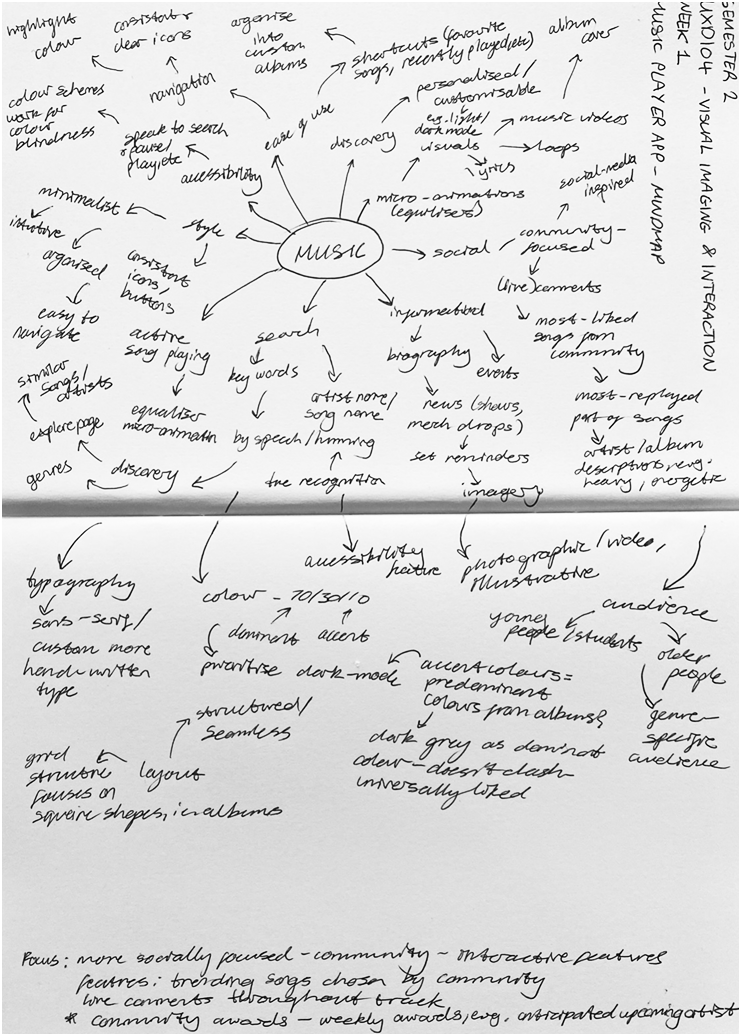 SEMESTER 2
UXD104 - VISUAL IMAGING & INTERACTION
WEEK 1
MUSIC PLAYER APP - MINDMAP
MUSIC
ease of use
navigation
consistent &
clear icons
highlight
colour
argenise
into
custom
albums
shortcuts (favourite
songs, recently played, etc)
accessibility
speak to search
& pause/
play, etc
colour schemes
work for
colour
blindness
discovery
personalised/
customisable
e.g. light/
dark mode
visuals
music videos
album
cover
loops
lyrics
micro-animations
(equilisers)
style
minimalist
intuitive
organised
easy to
navigate
consistent
icons,
buttons
active
song playing
equaliser
micro-animation
search
key words
artist name/
song name
by speech/humming
tune recognition
accessibility
feature
discovery
explore page
similar
songs/
artists
genres
informational
biography
events
news (shows,
merch drops)
set reminders
social / community-
focused
social-media
inspired
(live) comments
most-liked
songs from
community
most-replayed
part of songs
artist/album
descriptions, e.g.
heavy, energetic
imagery
photographic/video,
illustrative
typography
sans-serif/
custom more
hand-written
type
colour - 70/30/10
dominant
accent
prioritise dark-mode
accent colours =
predominant
colours from albums
dark grey as dominant
colour - doesn't clash
universally liked
audience
young
people/students
older
people
genre-
specific
audience
layout
structured/
seamless
grid
structure
focuses on
square shapes, i.e. albums
Focus: more socially focused - community - interactive features
features: trending songs chosen by community
live comments throughout track
* community awards - weekly awards, e.g. anticipated upcoming artist